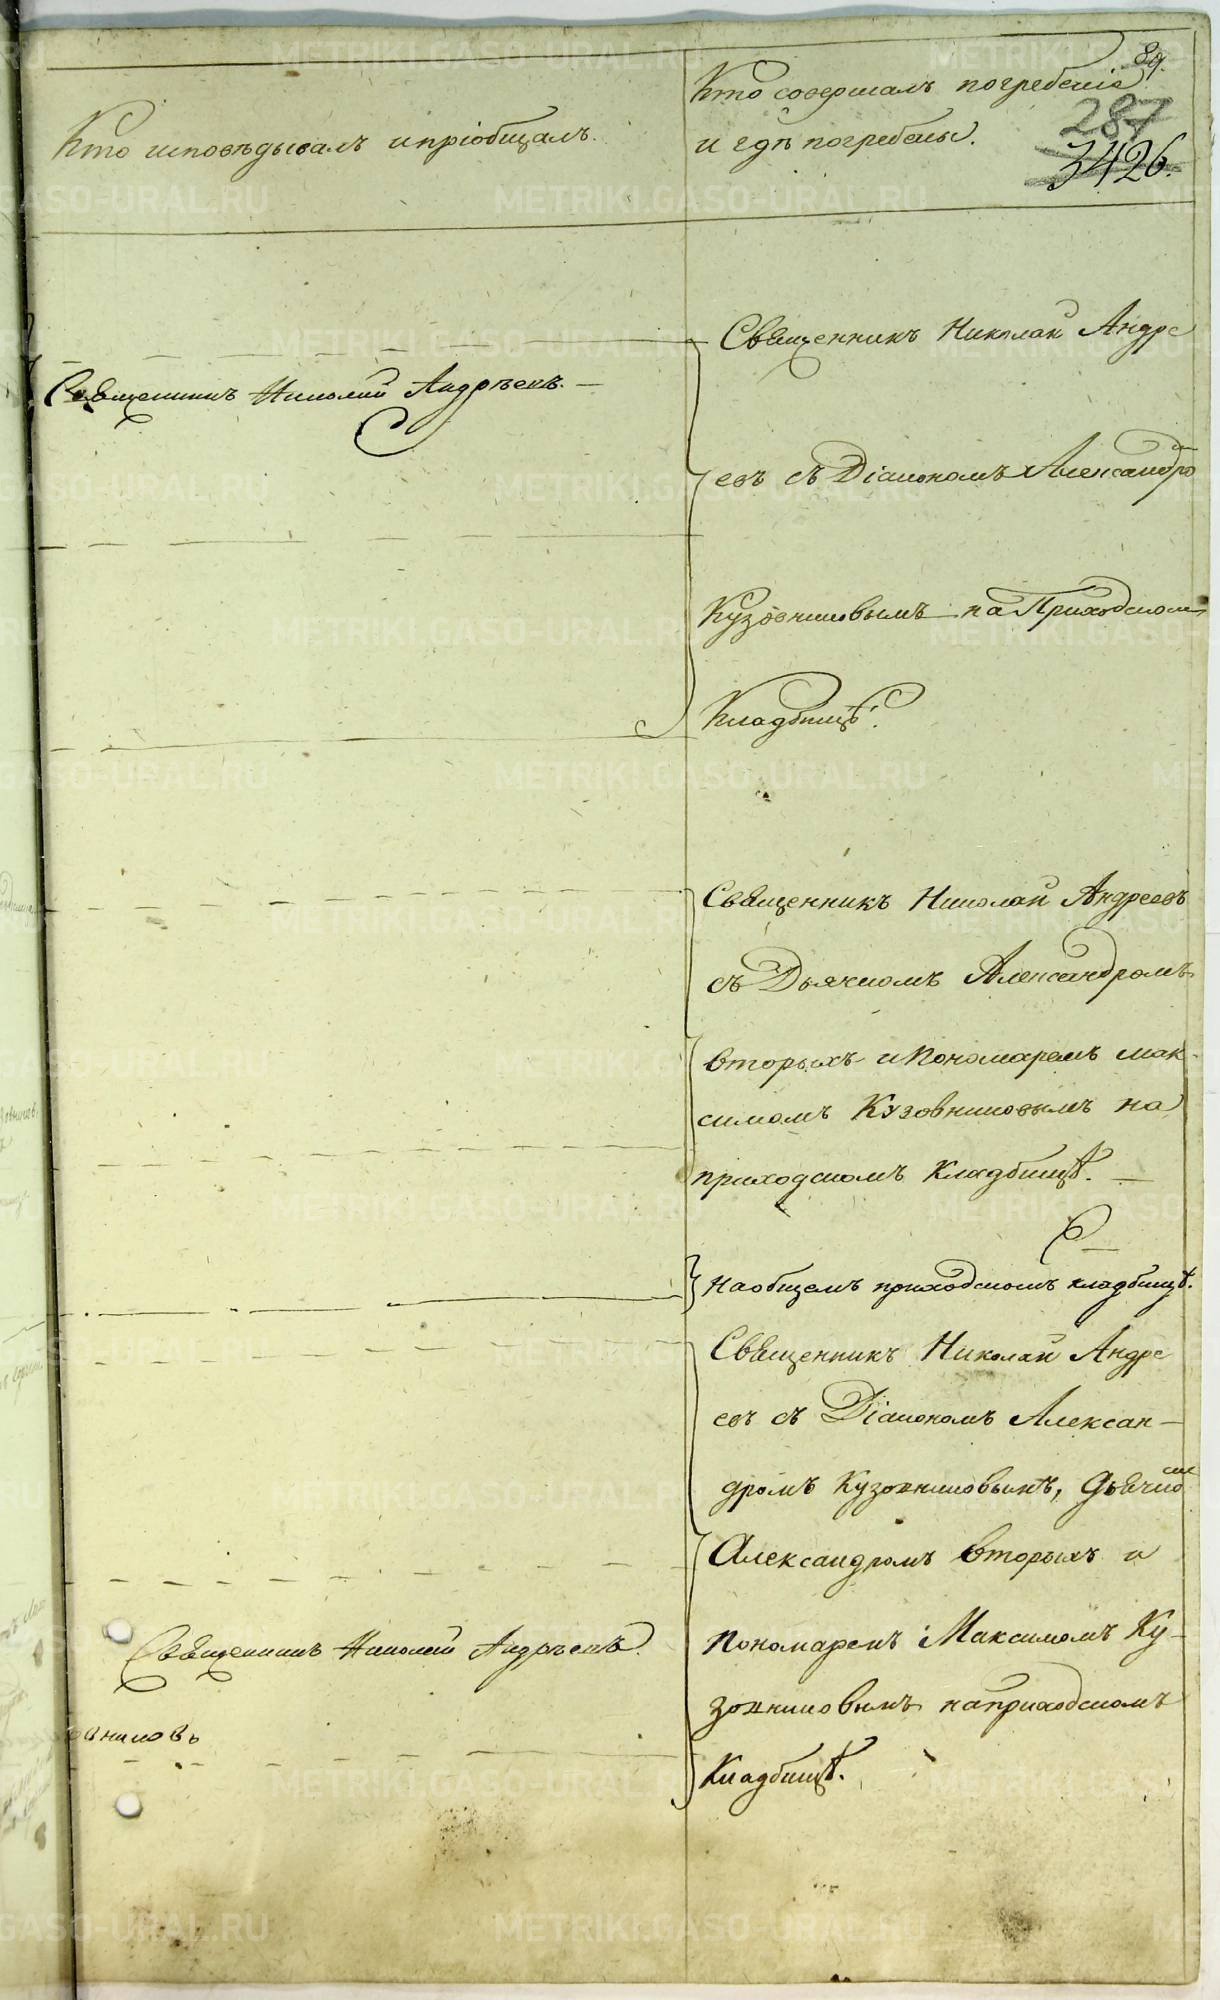 89.
Кто исповѣдывалъ и пріобщалъ.
Кто совершалъ погребеніе
и гдѣ погребены.
287
3426.
Священникъ Николай Андре
Священникъ Николай Андрѣевъ. —
евъ съ Діакономъ Александро
Кузовниковымъ на Приходском
Кладбищѣ.
Священникъ Николай Андреевъ
съ Дьячкомъ Александромъ
Вторыхъ и Пономаремъ Мак-
симомъ Кузовниковымъ на
приходскомъ Кладбищѣ. —
На общемъ приходскомъ кладбищѣ.
Священникъ Николай Андре
евъ съ Діакономъ Алексан-
дромъ Кузовниковымъ, Дьячко
мъ
Александромъ Вторыхъ и
Пономаремъ Максимомъ Ку-
Священникъ Николай Андрѣевъ.
зовниковымъ на приходскомъ
Кладбищѣ.
METRIKI.GASO-URAL.RU